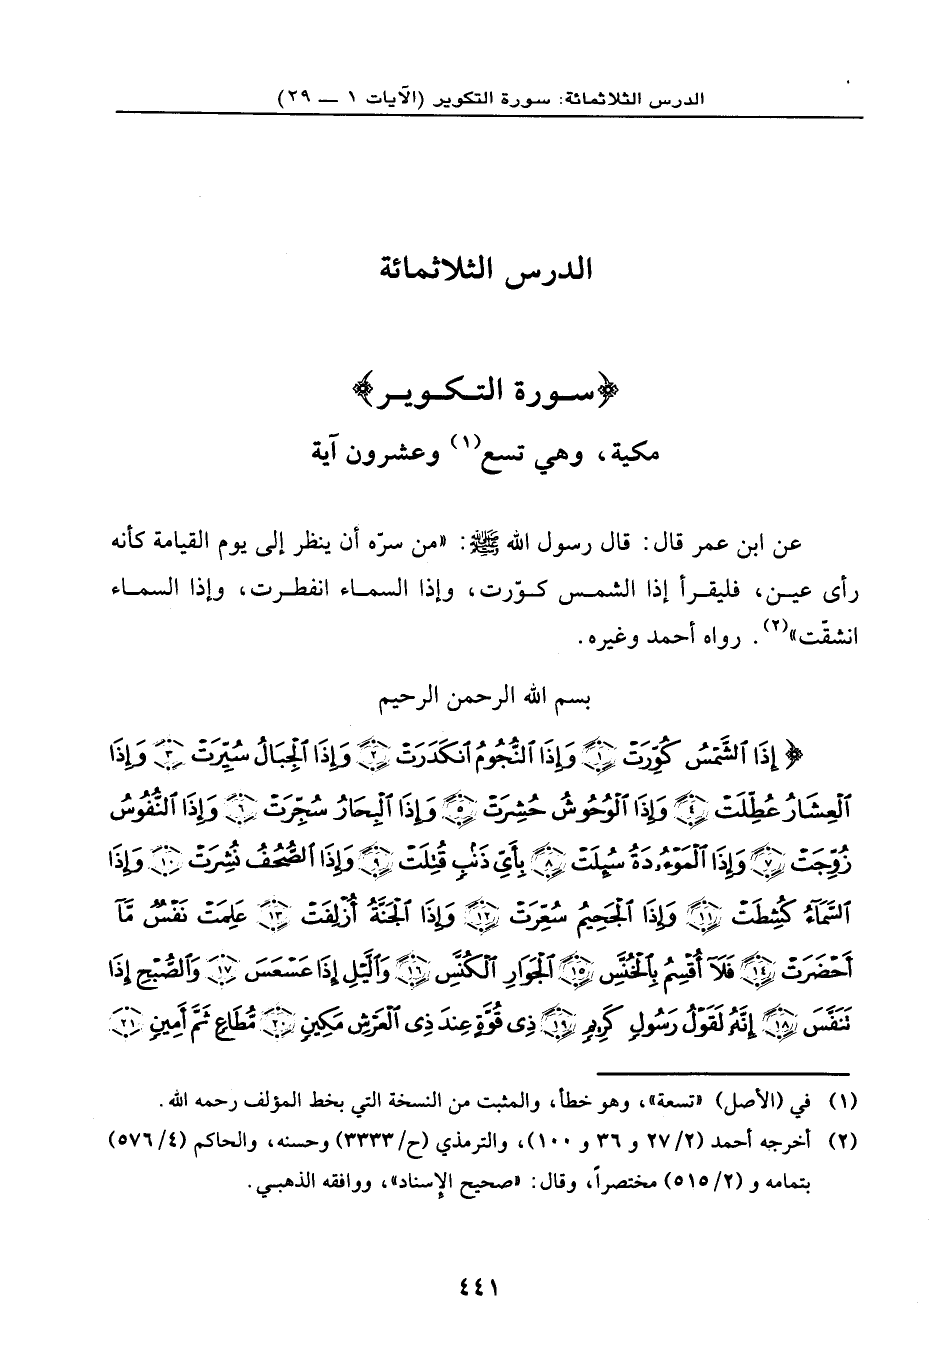 الدرس الثلاثمائة: سورة التكوير (الآيات ١ — ٢٩)
الدرس الثلاثمائة
﴿سورة التكوير﴾
مكية، وهي تسع(١) وعشرون آية
عن ابن عمر قال: قال رسول الله ﷺ: «من سرّه أن ينظر إلى يوم القيامة كأنه
رأى عين، فليقرأ إذا الشمس كوّرت، وإذا السماء انفطرت، وإذا السماء
انشقّت»(٢). رواه أحمد وغيره.
بسم الله الرحمن الرحيم
﴿إِذَا ٱلشَّمْسُ كُوِّرَتْ ۝١ وَإِذَا ٱلنُّجُومُ ٱنكَدَرَتْ ۝٢ وَإِذَا ٱلْجِبَالُ سُيِّرَتْ ۝٣ وَإِذَا
ٱلْعِشَارُ عُطِّلَتْ ۝٤ وَإِذَا ٱلْوُحُوشُ حُشِرَتْ ۝٥ وَإِذَا ٱلْبِحَارُ سُجِّرَتْ ۝٦ وَإِذَا ٱلنُّفُوسُ
زُوِّجَتْ ۝٧ وَإِذَا ٱلْمَوْءُۥدَةُ سُئِلَتْ ۝٨ بِأَيِّ ذَنۢبٍ قُتِلَتْ ۝٩ وَإِذَا ٱلصُّحُفُ نُشِرَتْ ۝١٠ وَإِذَا
ٱلسَّمَآءُ كُشِطَتْ ۝١١ وَإِذَا ٱلْجَحِيمُ سُعِّرَتْ ۝١٢ وَإِذَا ٱلْجَنَّةُ أُزْلِفَتْ ۝١٣ عَلِمَتْ نَفْسٌ مَّآ
أَحْضَرَتْ ۝١٤ فَلَآ أُقْسِمُ بِٱلْخُنَّسِ ۝١٥ ٱلْجَوَارِ ٱلْكُنَّسِ ۝١٦ وَٱلَّيْلِ إِذَا عَسْعَسَ ۝١٧ وَٱلصُّبْحِ إِذَا
تَنَفَّسَ ۝١٨ إِنَّهُۥ لَقَوْلُ رَسُولٍ كَرِيمٍ ۝١٩ ذِى قُوَّةٍ عِندَ ذِى ٱلْعَرْشِ مَكِينٍ ۝٢٠ مُّطَاعٍ ثَمَّ أَمِينٍ ۝٢١
(١) في (الأصل) «تسعة»، وهو خطأ، والمثبت من النسخة التي بخط المؤلف رحمه الله.
(٢) أخرجه أحمد (٢/ ٢٧ و ٣٦ و ١٠٠)، والترمذي (ح/ ٣٣٣٣) وحسنه، والحاكم (٤/ ٥٧٦)
بتمامه و (٢/ ٥١٥) مختصراً، وقال: «صحيح الإسناد»، ووافقه الذهبي.
٤٤١